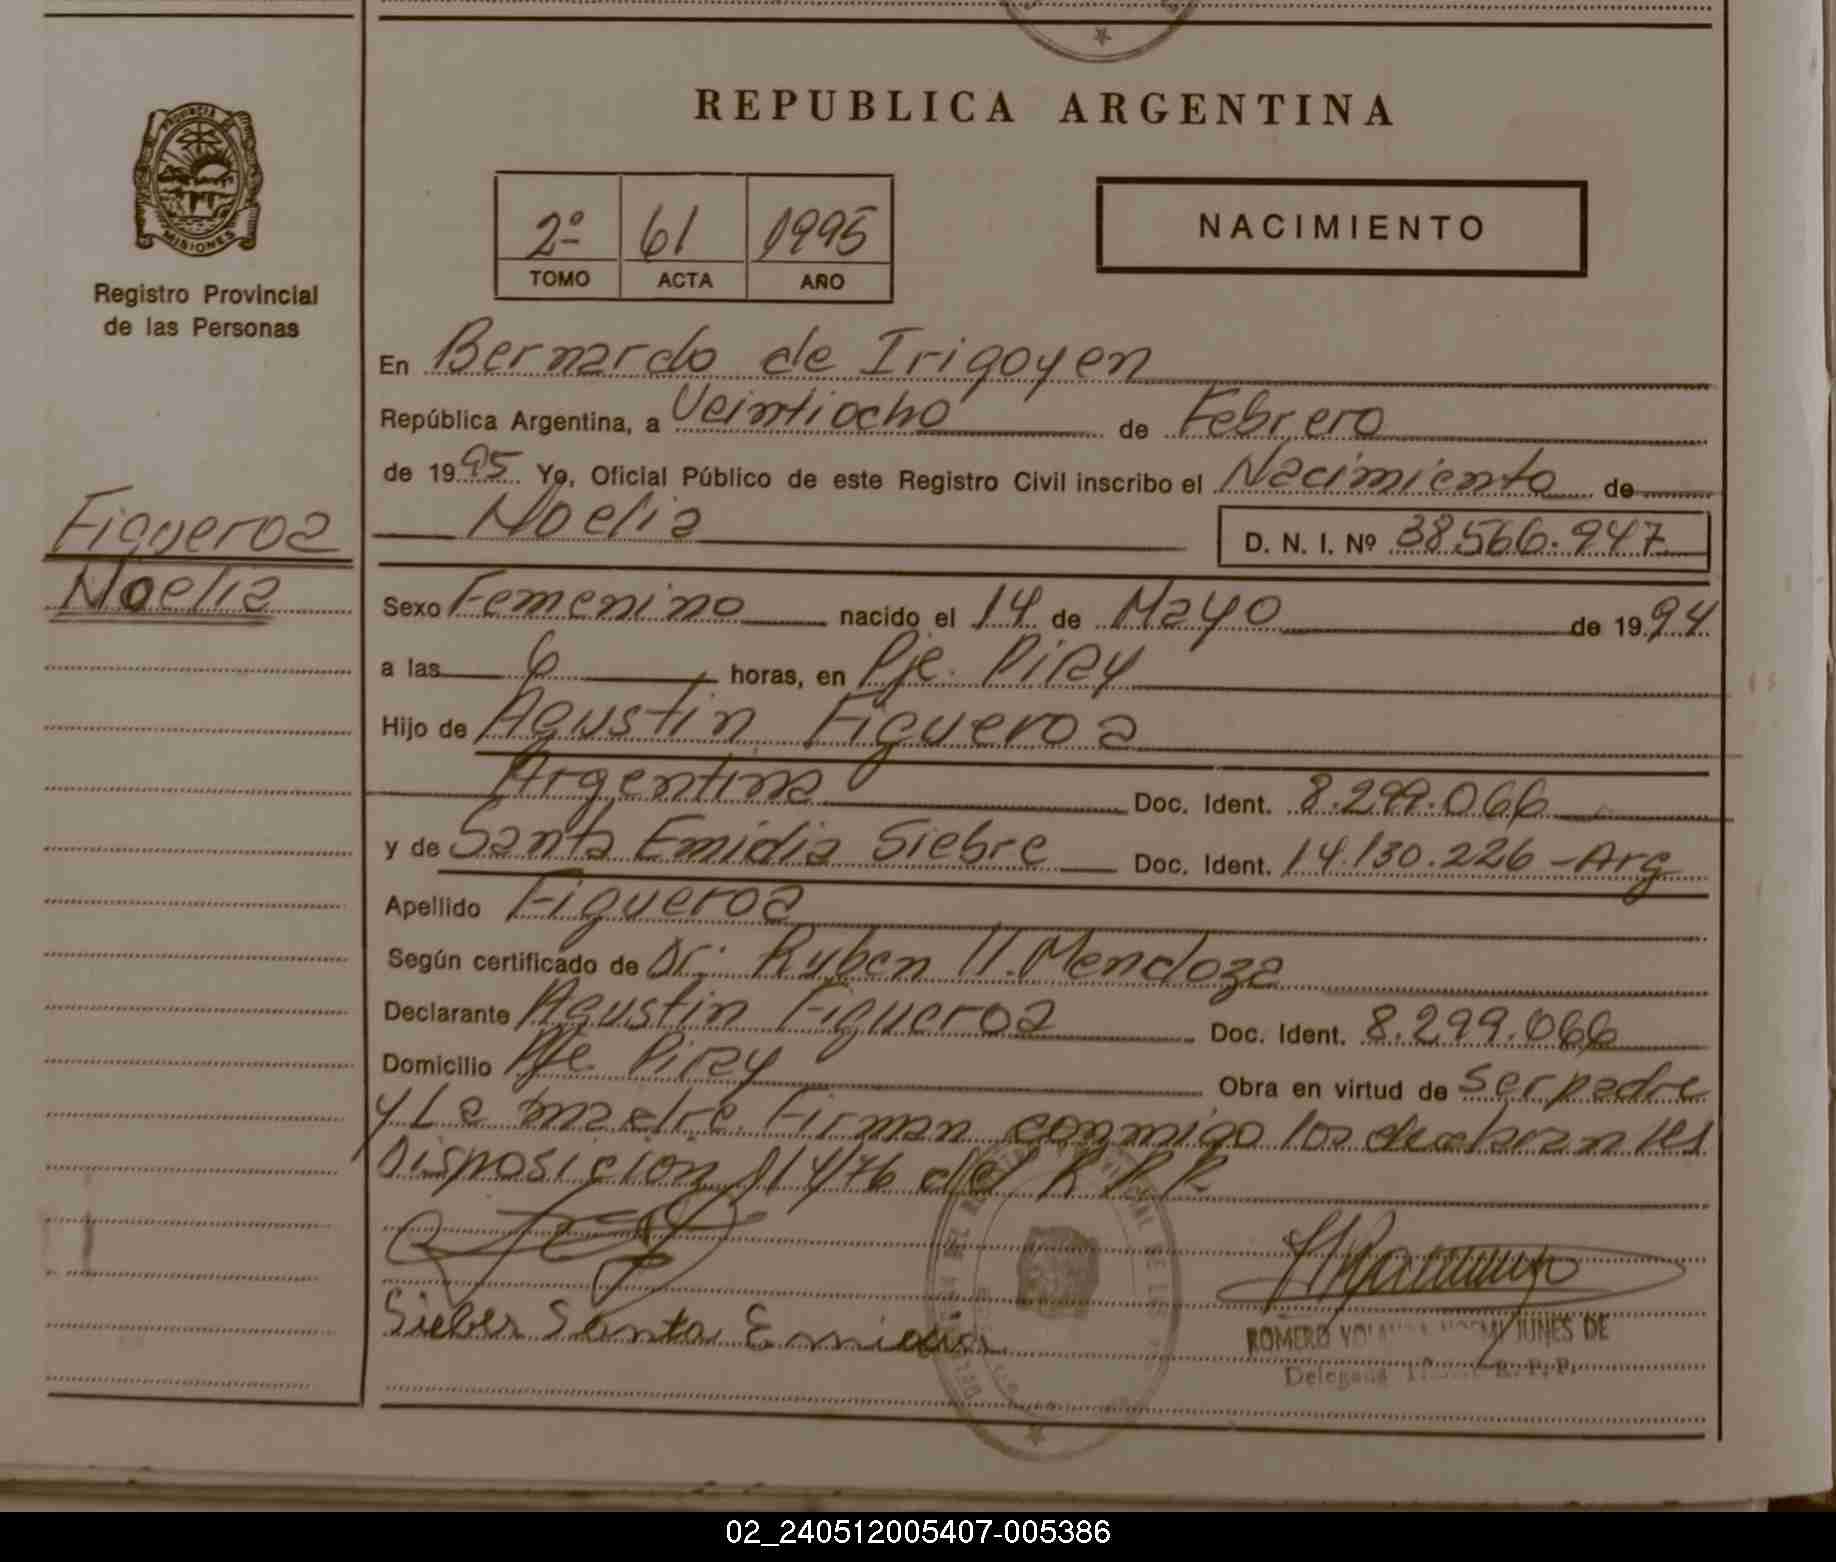 REPUBLICA ARGENTINA
PROVINCIA DE
MISIONES
Registro Provincial
de las Personas
2º 61 1995
TOMO ACTA AÑO
NACIMIENTO
En Bernardo de Irigoyen
República Argentina, a Veintiocho de Febrero
de 1995 Yo, Oficial Público de este Registro Civil inscribo el Nacimiento de
Noelia D. N. I. Nº 38.566.947
Figueroa
Noelia
Sexo Femenino nacido el 14 de Mayo de 1994
a las 6 horas, en Pje. Piray
Hijo de Agustin Figueroa
Argentina Doc. Ident. 8.299.066
y de Santa Emidia Siebre Doc. Ident. 14.130.226 - Arg
Apellido Figueroa
Según certificado de Dr: Ruben Mendoza
Declarante Agustin Figueroa Doc. Ident. 8.299.066
Domicilio Pje Piray Obra en virtud de ser padre
y La madre. Firman conmigo los declarantes
Disposicion 914/76 del R P P
Sieber Santa Emidia
ROMERO YOLANDA NOEMI JUNES DE
Delegada R. P. P.
02_240512005407-005386